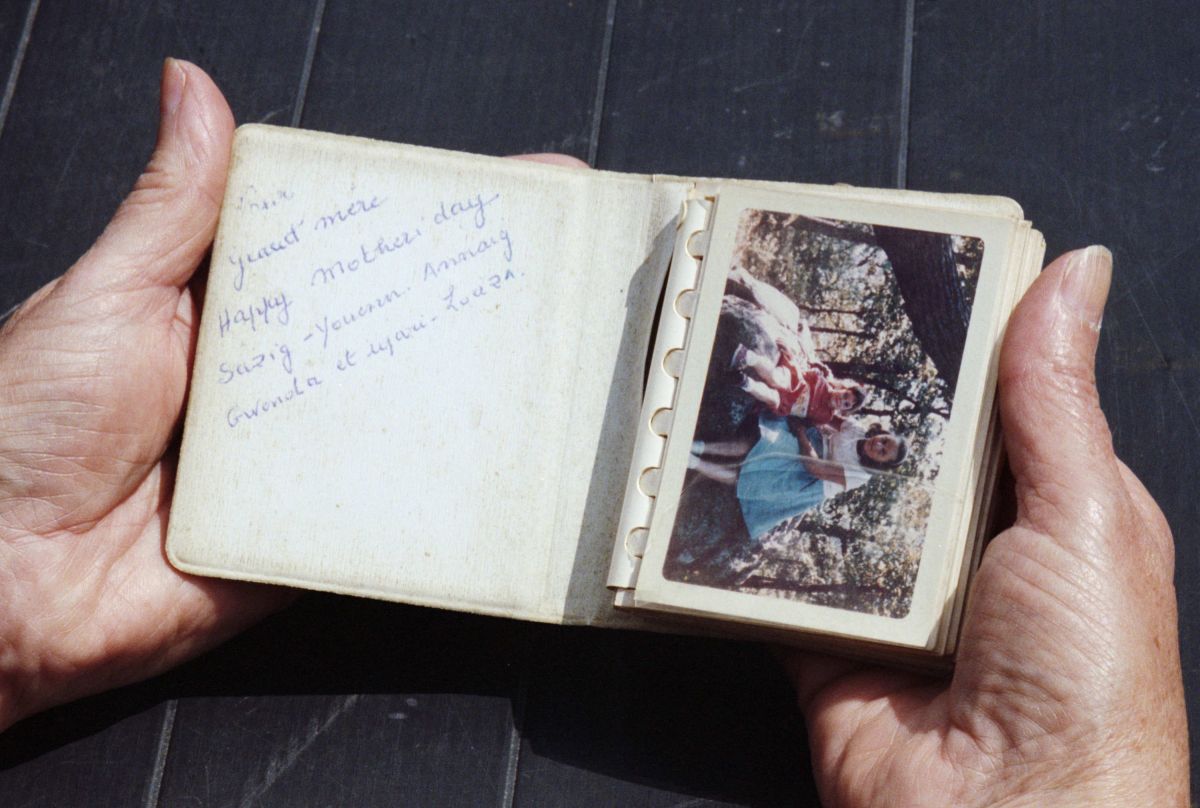 Grand mère
Happy Mothers day
Sazig - Youenn. Annaig
Gwenola et Loeza.